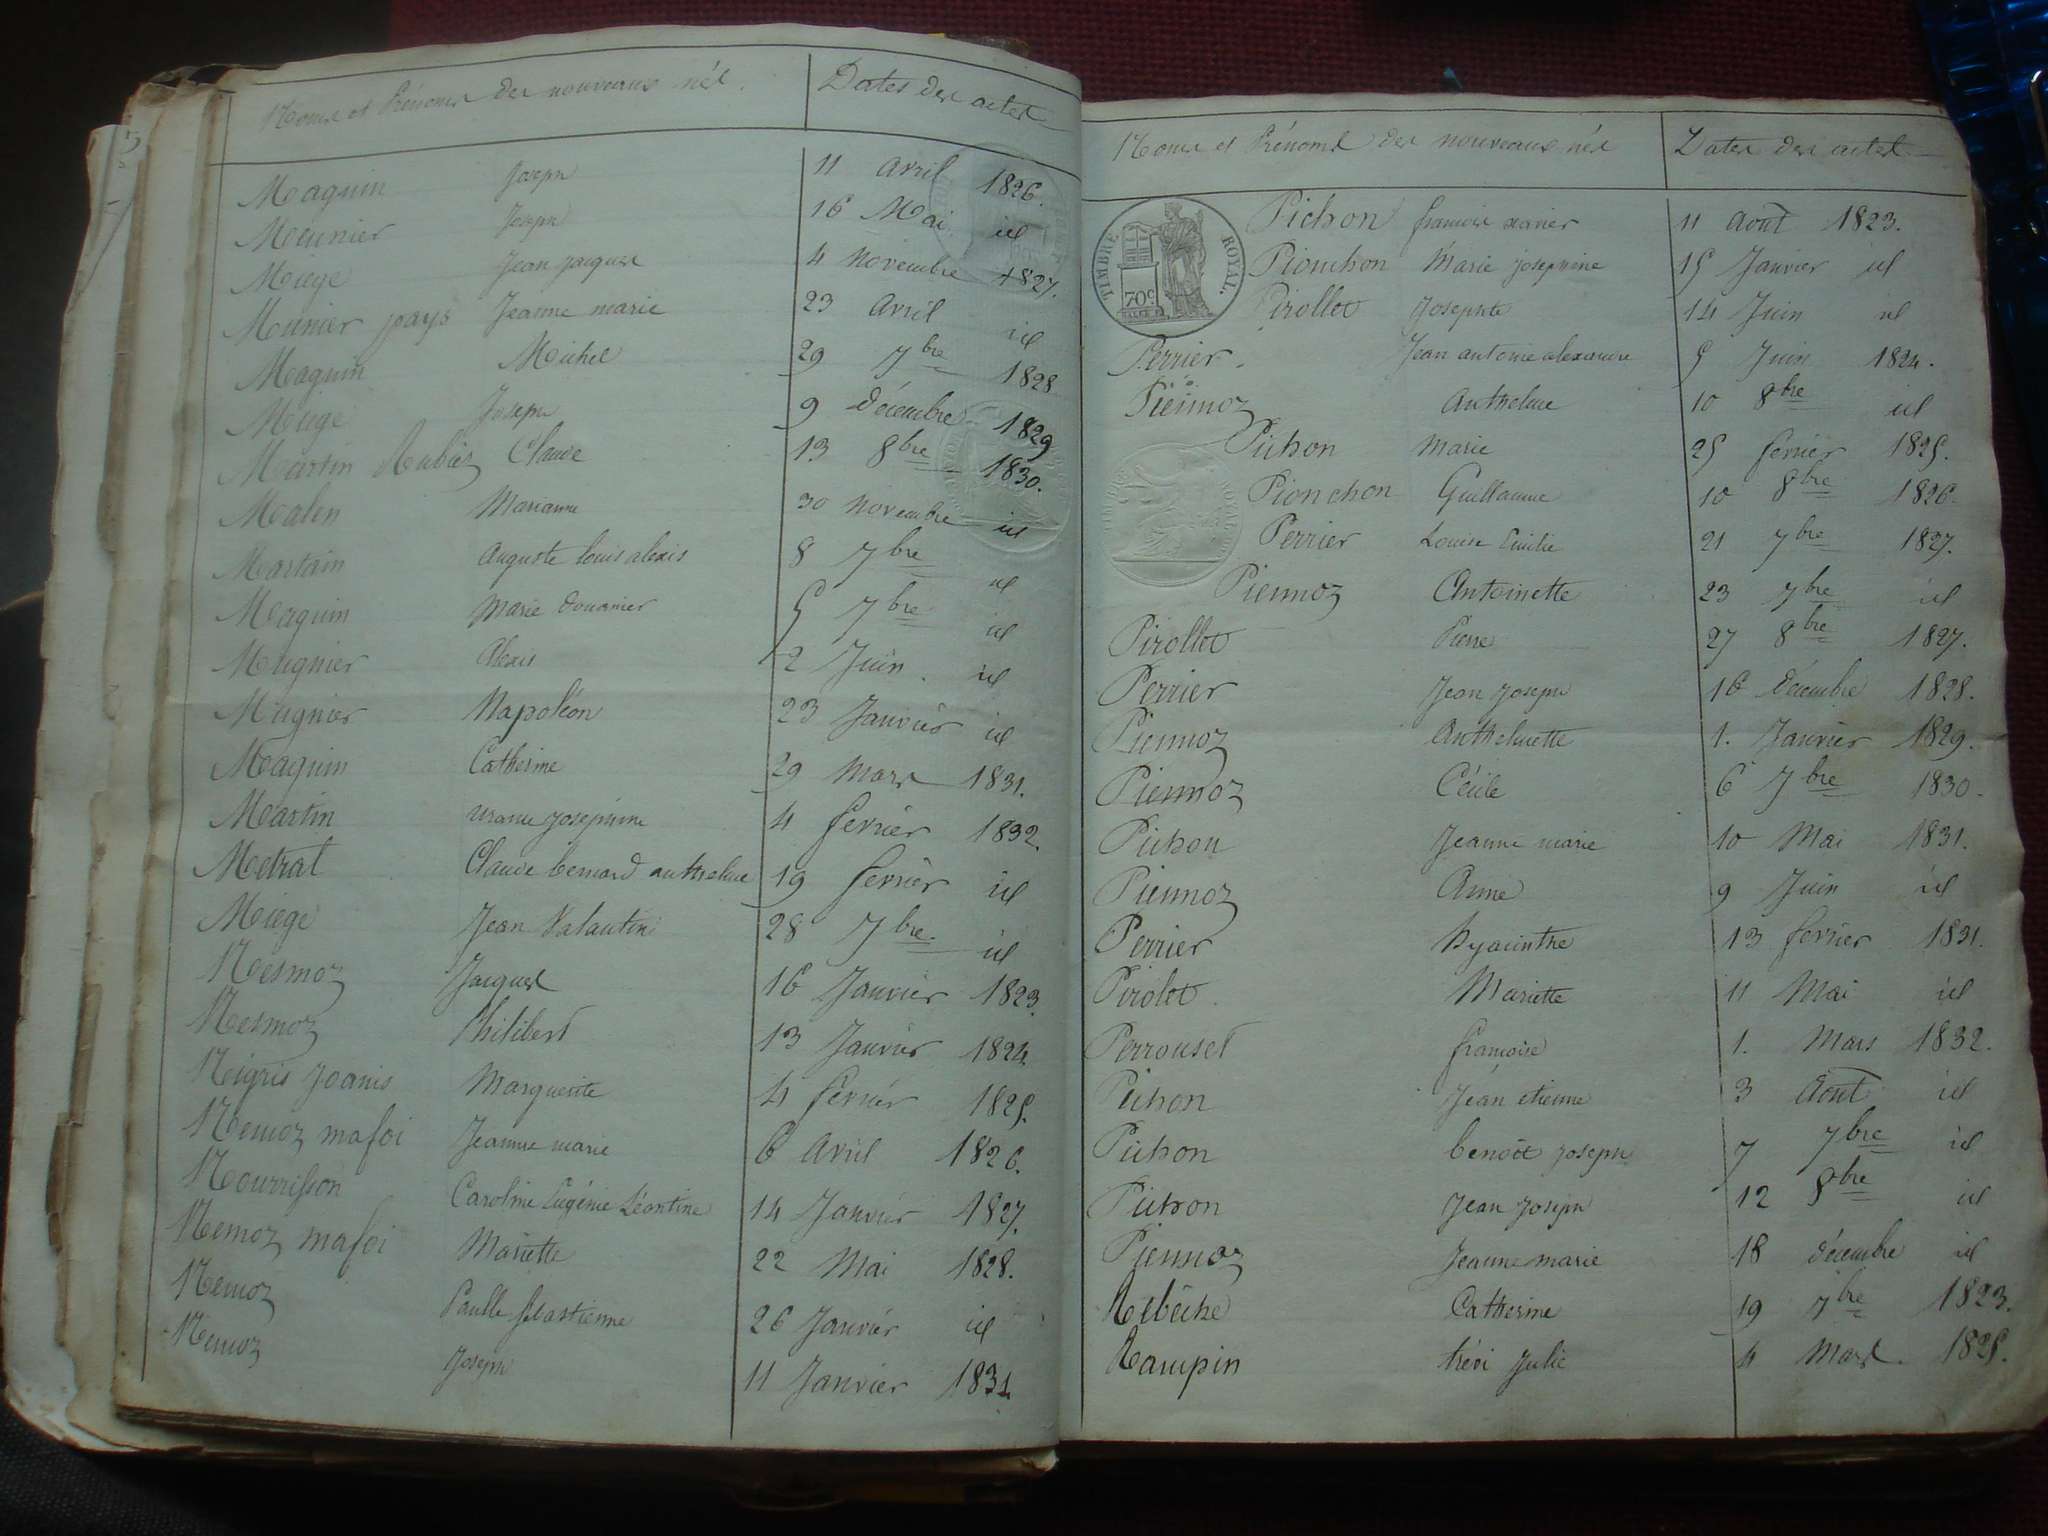 Noms et Prénoms des nouveaux nés. Dates des actes
Maquin Joseph 11 avril 1826.
Meunier Joseph 16 Mai id
Miege Jean Jacques 4 Novembre 1827.
Meunier pays Jeanne marie 23 avril id
Maquin Michel 29 7bre 1828
Miege Joseph 9 décembre 1829
Martin Rubies Claude 13 8bre 1830.
Malen Marianne 30 Novembre id
Martain auguste louis alexis 8 7bre id
Maquin Marie 5 7bre id
Mugnier Alexis 2 Juin. id
Mugnier Napoléon 23 Janvier id
Maquin Catherine 29 Mars 1831.
Martin Josephine 4 fevrier 1832.
Metral Claude bernard anthelme 19 fevrier id
Miege Jean Valantin 28 7bre. id
Nesmoz Jacques 16 Janvier 1823.
Nesmoz Philibert 13 Janvier 1824.
Nigris Joanis Marguerite 4 fevrier 1825.
Nemoz mafoi Jeanne marie 6 avril 1826.
Nourrisson Caroline Eugénie Léontine 14 Janvier 1827.
Nemoz mafoi Mariette 22 Mai 1828.
Nemoz Paulle sebastienne 26 Janvier id
Nemoz Joseph 11 Janvier 1831
Noms et Prénoms des nouveaux nés Dates des actes
TIMBRE ROYAL.
70c
Pichon francois xavier 11 Aout 1823.
Pionchon Marie josephine 15 Janvier id
Pirollet Josephte 14 Juin id
Perrier. Jean antoine alexandre 5 Juin 1824.
Piennoz Anthelme 10 8bre id
Pichon Marie 25 fevrier 1825.
Pionchon Guillaume 10 8bre 1826.
Perrier Louise Emilie 21 7bre 1827.
Piennoz Antoinette 23 7bre id
Pirollet Pierre 27 8bre 1827.
Perrier Jean Joseph 16 décembre 1828.
Piennoz Anthelmette 1. Janvier 1829.
Piennoz Cécile 6 7bre 1830.
Pichon Jeanne marie 10 Mai 1831.
Piennoz Anne 9 Juin id
Perrier hyacinthe 13 fevrier 1831.
Pirolet. Mariette 11 Mai id
Perrousel françoise 1. Mars 1832.
Pichon Jean etienne 3 Aout id
Pichon benoit joseph 7 7bre id
Pichon Jean Joseph 12 8bre id
Piennoz Jeanne marie 18 décembre id
Rebeche Catherine 19 7bre 1823.
Raupin Julie 4 Mars. 1825.